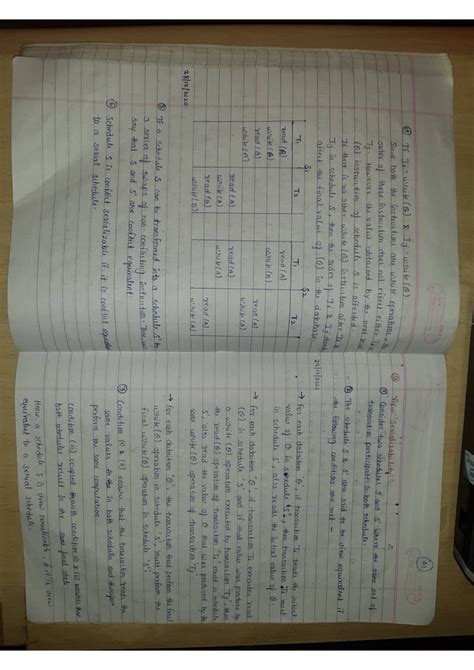 ④ If Ii = write(Q) & Ij = write(Q)
Since both the instructions are write operation the
order of these instruction does not affect either Ti or
Tj. However the value obtained by the next read
(Q) instruction of schedule S is affected.
If there is no other write(Q) instruction after Ii &
Ij in schedule S, then the order of Ii & Ij directly
affect the final value of (Q) in the database
S1 S2
T1 T2 T1 T2
read(A) read(A)
write(A)
read(A)
write(A)
read(A)
write(A)
write(A)
28/12/2020
⑤ If a schedule S can be transformed into a schedule S' by
a series of swaps of non-conflicting instruction. Then we
say that S and S' are conflict equivalent
⑥ Schedule S is conflict serializable if it is conflict
to a serial schedule.
51
View Serializability
① Consider two schedules S and S' where the same set of
transaction participate in both schedule.
29/12/2020
② The schedule S & S' are said to be view equivalent if
the following condition are met -
→ For each dataitem 'Q', if transaction Ti reads the initial
value of Q in schedule S, then transaction Ti must
in schedule S', also read the initial value of Q.
→ For each dataitem 'Q' if transaction Ti executes read
(Q) in schedule 'S' and if that value was produce by
a write(Q) operation executed by transaction Tj, then
the read(Q) operation of transaction 'Ti' must in schedule
S' also read the value of Q that was produced by the
same write(Q) operation of transaction Tj
→ For each dataitem 'Q', the transaction that perform the final
write(Q) operation in schedule 'S' must perform the
final write(Q) operation in schedule 'S'.
③ Condition (i) & (ii) ensure that the transaction reads the
same values in both schedule and
perform the same computation.
condition (iii) coupled with condition (i) & (ii) ensures that
both schedule result in the same final state
Hence a schedule S is view serializable, if it is view
equivalent to a serial schedule.